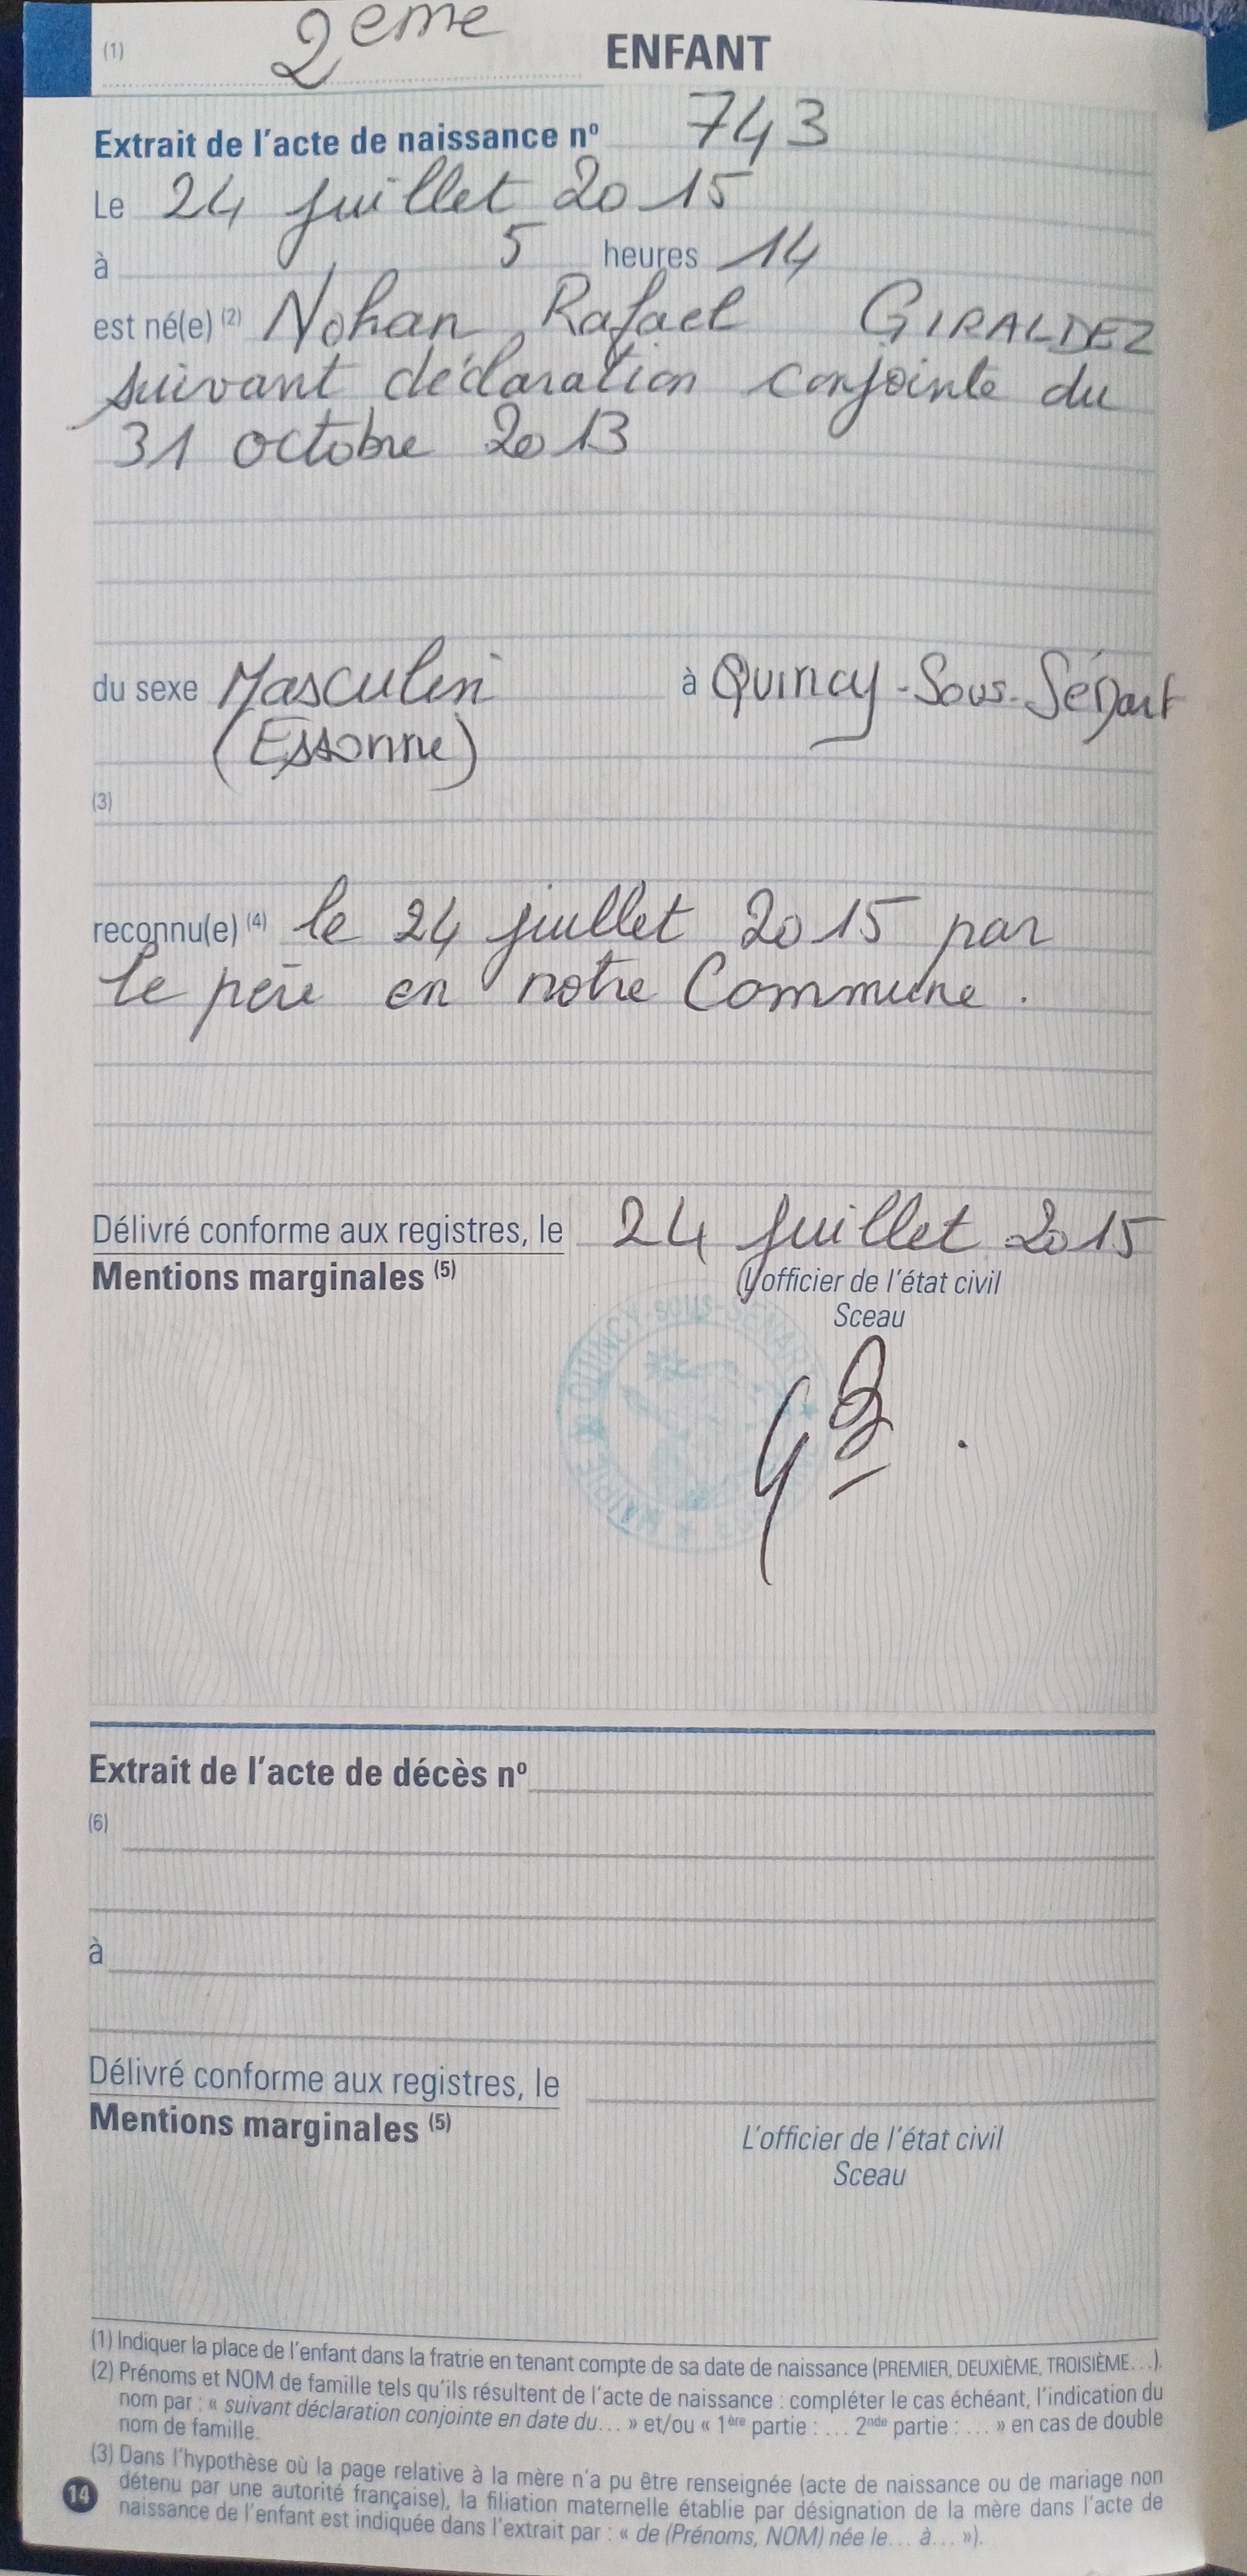 (1) 2eme ENFANT
Extrait de l'acte de naissance n° 743
Le 24 juillet 2015
à 5 heures 14
est né(e) (2) Nohan Rafael GIRALDEZ
suivant déclaration conjointe du
31 octobre 2013
du sexe Masculin à Quincy-Sous-Sénart
(Essonne)
(3)
reconnu(e) (4) le 24 juillet 2015 par
le père en notre Commune.
Délivré conforme aux registres, le 24 juillet 2015
Mentions marginales (5)
L'officier de l'état civil
Sceau
MAIRIE QUINCY-SOUS-SENART
Extrait de l'acte de décès n°
(6)
à
Délivré conforme aux registres, le
Mentions marginales (5)
L'officier de l'état civil
Sceau
(1) Indiquer la place de l'enfant dans la fratrie en tenant compte de sa date de naissance (PREMIER, DEUXIÈME, TROISIÈME...).
(2) Prénoms et NOM de famille tels qu'ils résultent de l'acte de naissance : compléter le cas échéant, l'indication du
nom par : « suivant déclaration conjointe en date du... » et/ou « 1ère partie : ... 2nde partie : ... » en cas de double
nom de famille.
(3) Dans l'hypothèse où la page relative à la mère n'a pu être renseignée (acte de naissance ou de mariage non
détenu par une autorité française), la filiation maternelle établie par désignation de la mère dans l'acte de
naissance de l'enfant est indiquée dans l'extrait par : « de (Prénoms, NOM) née le... à... »).
14